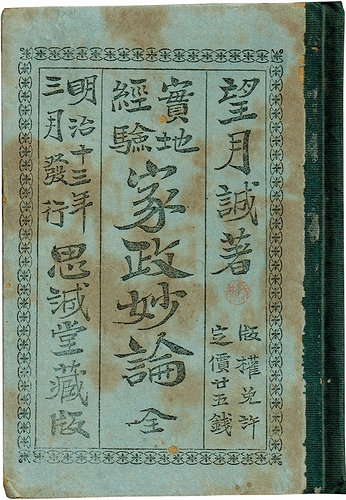 望月誠著
版權免許
定價廿五錢
實地
經驗
家政妙論 全
明治十三年
三月發行
思誠堂藏版